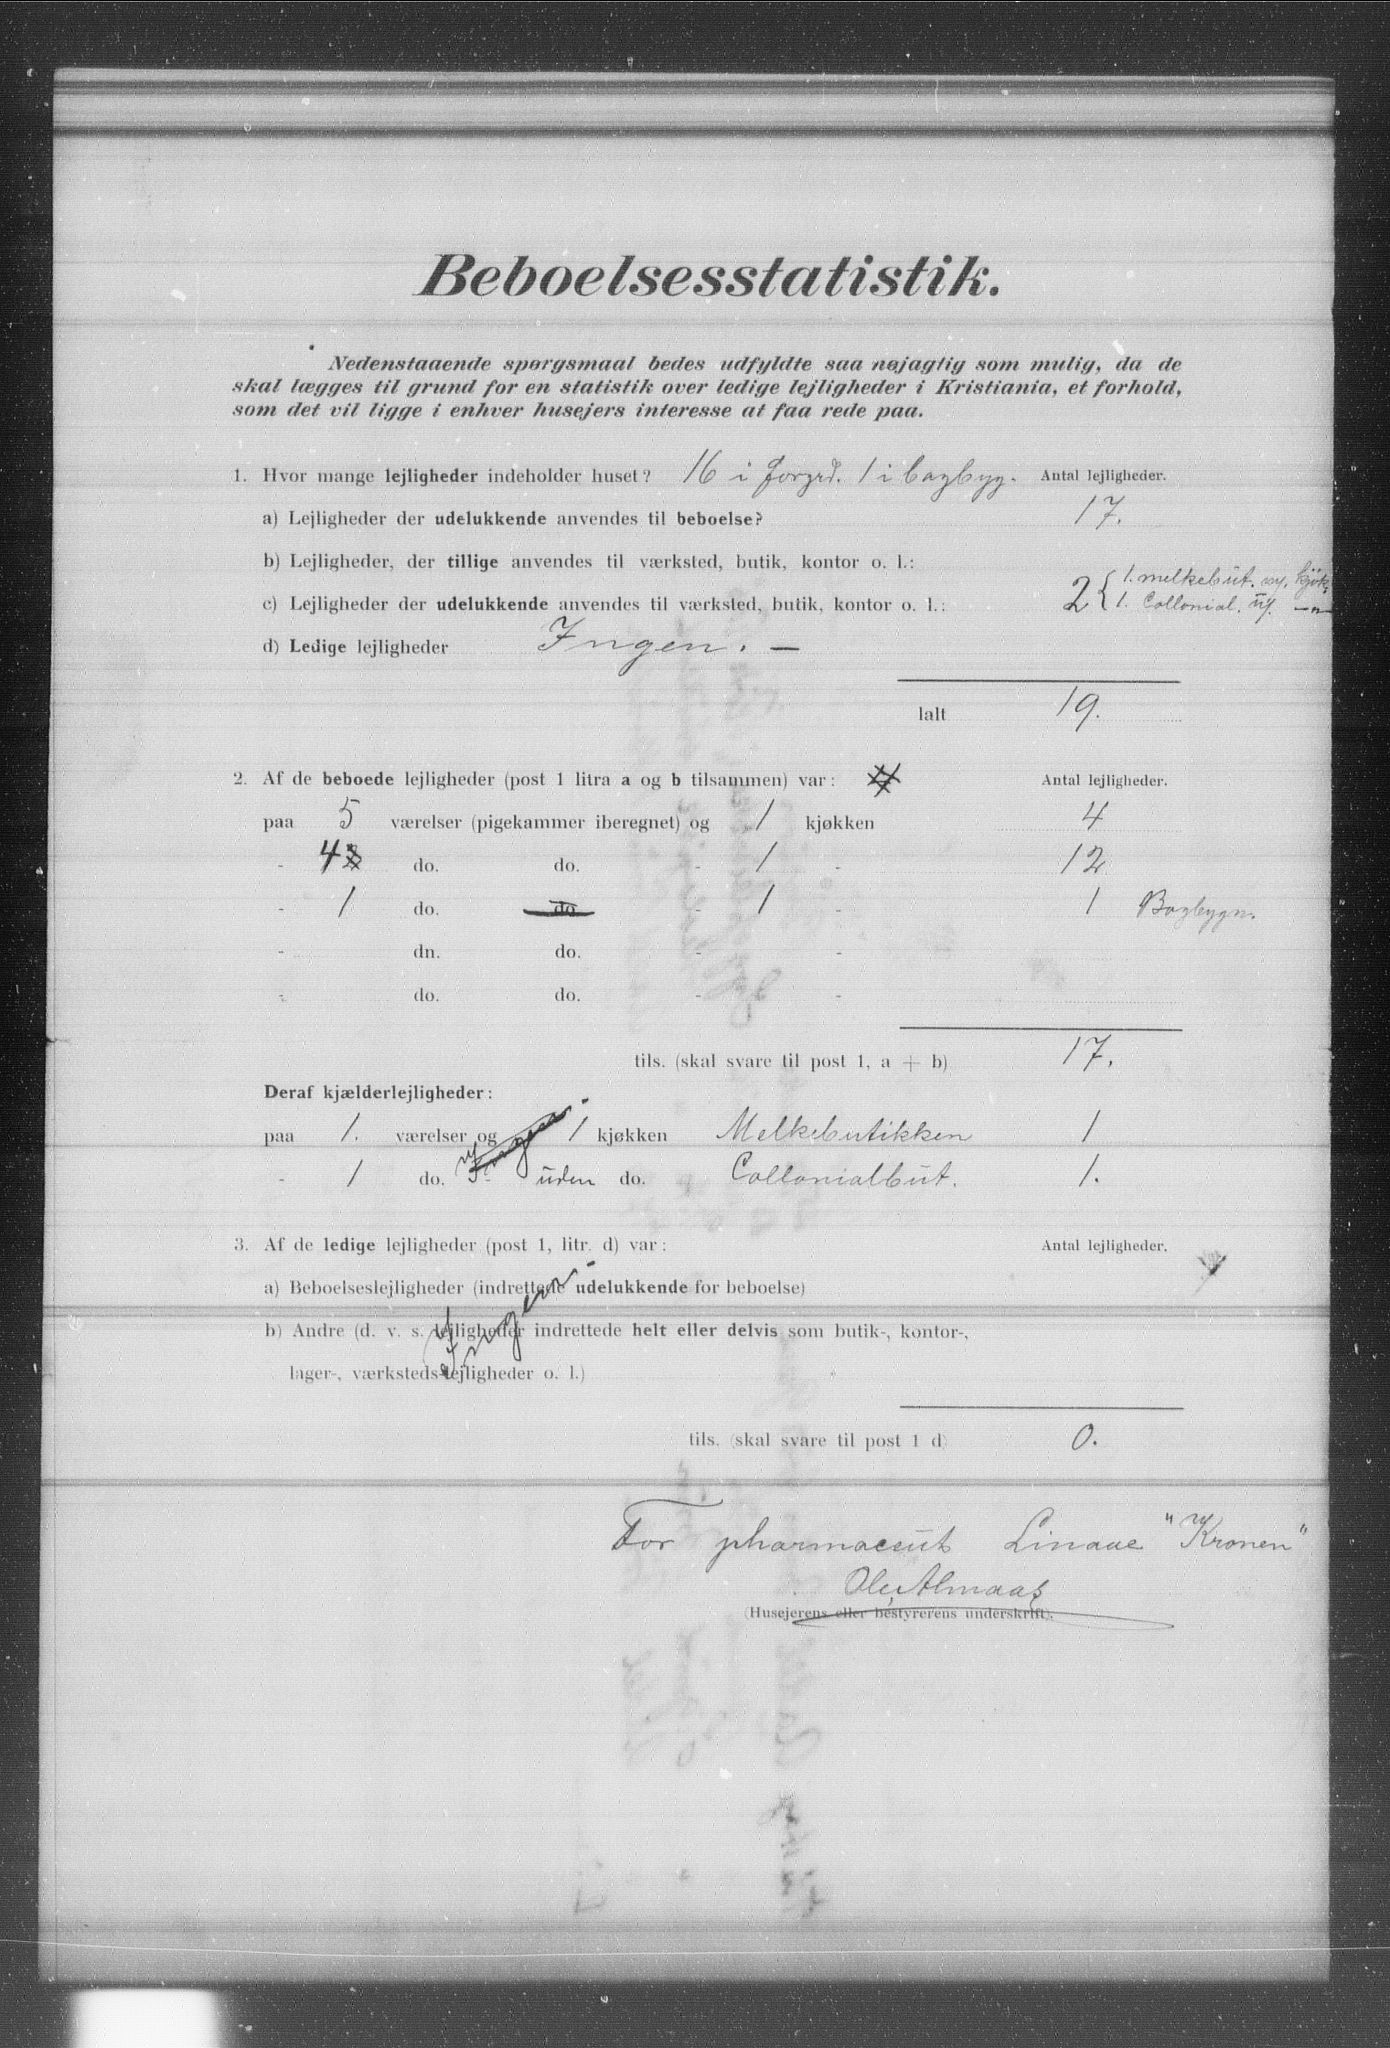 Beboelsesstatistik.
Nedenstaaende spørgsmaal bedes udfyldte saa nøjagtig som mulig, da de
skal lægges til grund for en statistik over ledige lejligheder i Kristiania, et forhold,
som det vil ligge i enhver husejers interesse at faa rede paa.
1. Hvor mange lejligheder indeholder huset? 16 i forgrd. 1 i bagbyg. Antal lejligheder.
a) Lejligheder der udelukkende anvendes til beboelse? 17.
b) Lejligheder, der tillige anvendes til værksted, butik, kontor o. l.:
1. melkebut. m/. kjøk.
c) Lejligheder der udelukkende anvendes til værksted, butik, kontor o. l.: 2 { 1. Collonial. u/. —"—
d) Ledige lejligheder Ingen. —
Ialt 19.
2. Af de beboede lejligheder (post 1 litra a og b tilsammen) var: Antal lejligheder.
paa 5 værelser (pigekammer iberegnet) og 1 kjøkken 4
- 4 do. do. - 1 - 12
- 1 do. do. - 1 - 1 Bagbygn.
- dn. do. - -
- do. do. - -
tils. (skal svare til post 1, a + b) 17.
Deraf kjælderlejligheder:
paa 1. værelser og Ingen. 1 kjøkken Melkebutikken 1
- 1 do. - uden do. Collonialbut. 1.
3. Af de ledige lejligheder (post 1, litr. d) var: Antal lejligheder.
a) Beboelseslejligheder (indrettede udelukkende for beboelse)
Ingen.
b) Andre (d. v. s. lejligheder indrettede helt eller delvis som butik-, kontor-,
lager-, værksteds-lejligheder o. l.)
tils. (skal svare til post 1 d) 0.
For pharmaceut Linaae "Kronen"
Ole Almaas
(Husejerens eller bestyrerens underskrift).